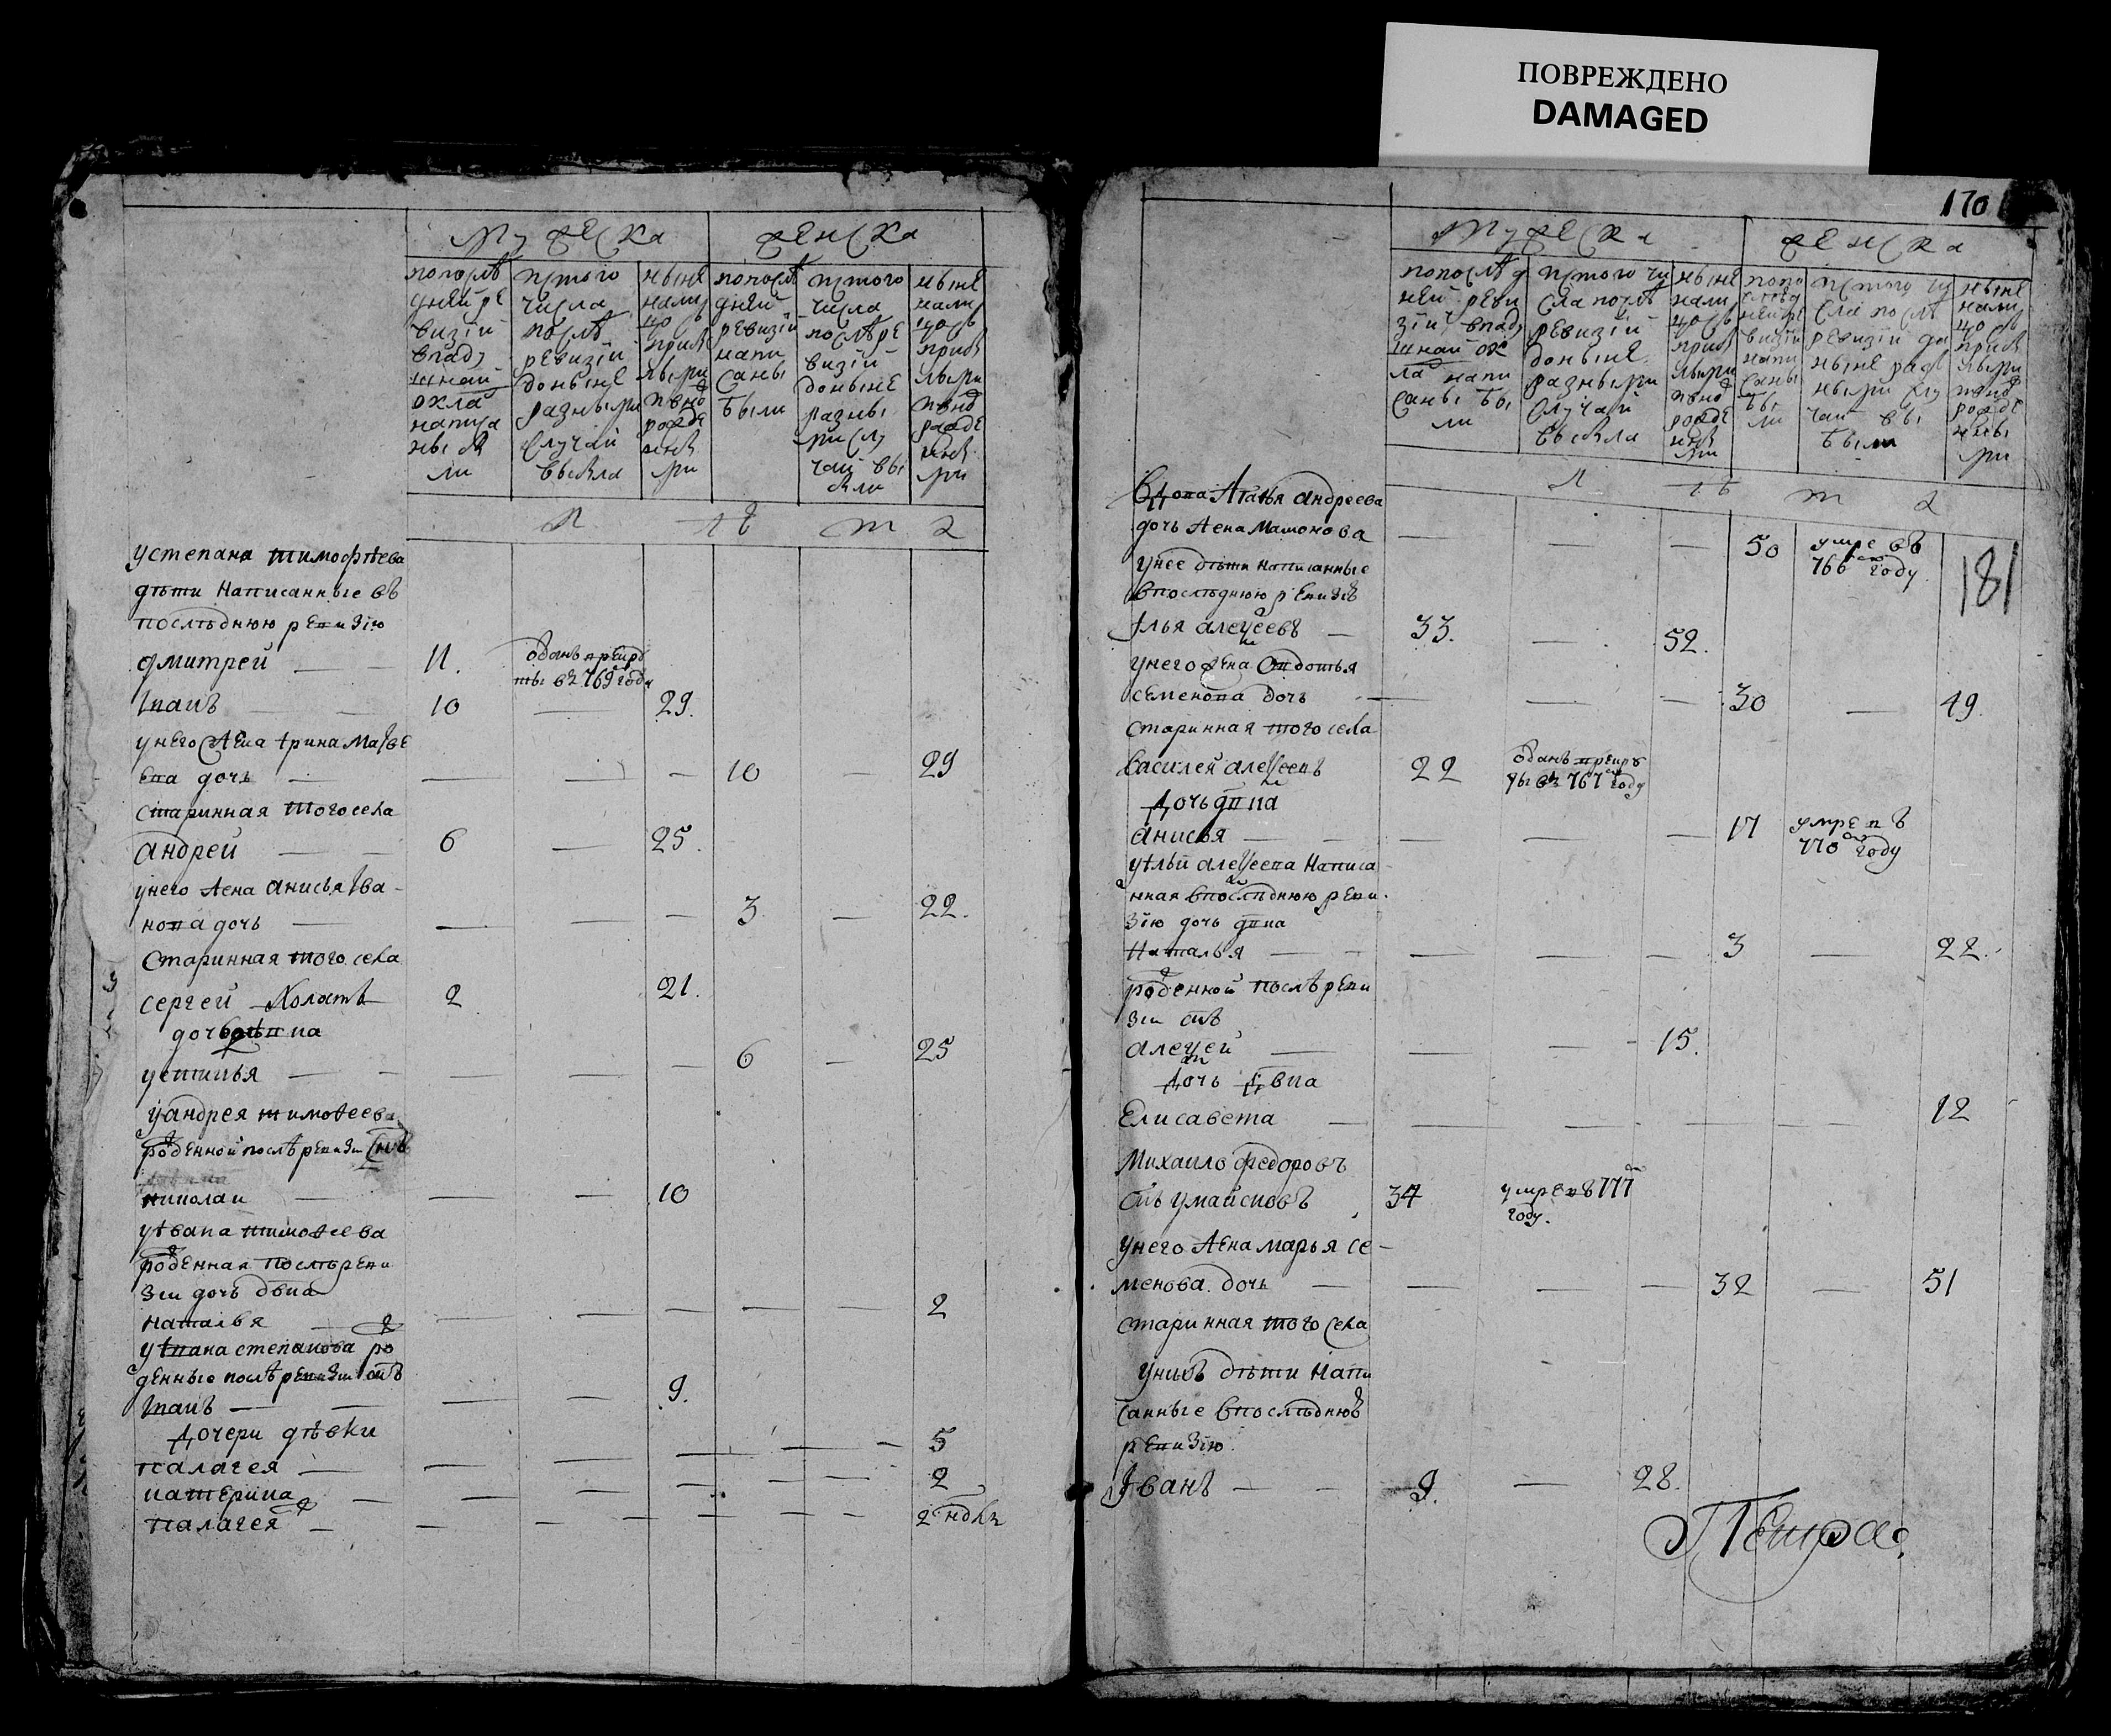 ПОВРЕЖДЕНО
DAMAGED
170
181
мужеска
женска
попослѣ
дней ре
визіи
вподу
шной
окла
написа
ны бы
ли
истого
числа
послѣ
ревизіи
доныне
разными
случаи
выбыла
ныне
налиц
цо съ
прибы
лыми
ивно
рожде
ными
попослѣ
дней
ревизіи
напи
саны
были
истого
числа
послѣ ре
визіи
доныне
разны
ми слу
чаи вы
были
ныне
налиц
цо съ
прибы
лыми
ивно
рожде
нны
ми
л ѣ т а
устепана тимофѣева
дѣти написанные въ
послѣднюю ревизію
дмитрей 11. отданъ врекру
ты въ 769 году
Іванъ 10 — 29.
унего жена Арина Матве
ева дочь — — — 10 — 29
старинная того села
андрей 6 — 25.
унего жена анисья Ива
нова дочь — — — 3 — 22.
старинная того села
сергей холостъ 2 21.
дочь девка
устинья — — — 6 — 25
уандрея тимофеева
рожденной послѣ ревизи снъ
николаи — — 10
уивана тимофеева
рожденная послѣ реви
зи дочь девка
наталья — — — — — 2
уивана степанова ро
жденные послѣ ревизи снъ
Іванъ — — 9.
дочери дѣвки
палагея — — — — — 5
катерина — — — — — 2
палагея — — — — — 2 недѣл
мужеска
женска
попослѣд
ней реви
зіи вподу
шной ок
ла напи
саны бы
ли
истого чи
сла послѣ
ревизіи
доныне
разными
случаи
выбыла
ныне
нали
цо съ
прибы
лыми
ивно
рожде
нны
ми
попо
слѣд
ней ре
визіи
напи
саны
бы
ли
истого чи
сла послѣ
ревизіи до
ныне раз
ными слу
чаи вы
были
ныне
нали
цо съ
прибы
лыми
ивно
рожде
нны
ми
л ѣ т а
Вдова Агафья андреева
дочь жена Мамонова — — — 50 умре въ
766м году
унее дѣти написанные
впослѣднюю ревизію
Илья алексеевъ — 33. — 52.
унего жена Овдотья
семенова дочь — — — 30 — 49
старинная того села
василей алексеевъ 22 отданъ врекру
ты въ 767м году
дочь девка
анисья — — — 17 умре въ
770м году
уильи алексеева написа
нная впослѣднюю реви
зію дочь девка
Наталья — — — 3 — 22.
рожденной послѣ реви
зи снъ
алексей — — — 15.
дочь девка
Елисавета — — — — — 12
Михаило федоровъ
снъ 34 умре в 777м
году.
унего жена марья се
менова дочь — — — 32 — 51
старинная того села
унихъ дѣти напи
санные впослѣднюю
ревизію
Иванъ — 9. — 28.
Петра